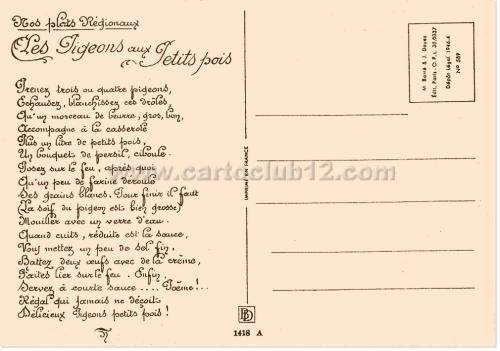 Nos plats Régionaux
Les Pigeons aux
Petits pois
Prenez trois ou quatre pigeons,
Echaudez, blanchissez ces drôles
Qu'un morceau de beurre, gros, bon,
Accompagne à la casserole
Puis un litre de petits pois,
Un bouquet de persil, ciboule.
Posez sur le feu, après quoi
Qu'un peu de farine déroule
Ses grains blancs. Pour finir il faut
(La soif du pigeon est bien grosse)
Mouiller avec un verre d'eau.
Quand cuits, réduite est la sauce,
Vous mettez un peu de sel fin.
Battez deux œufs avec de la crème,
Faites lier sur le feu. Enfin,
Servez à courte sauce .... Poème!..
Régal qui jamais ne déçoit
Délicieux Pigeons petits pois!
www.cartoclub12.com
IMPRIMÉ EN FRANCE
M. Barré & J. Dayez
Édit. Paris - O.P.L. 30.0037
Dépôt légal 1946-4
N° 589
BD
1418 A